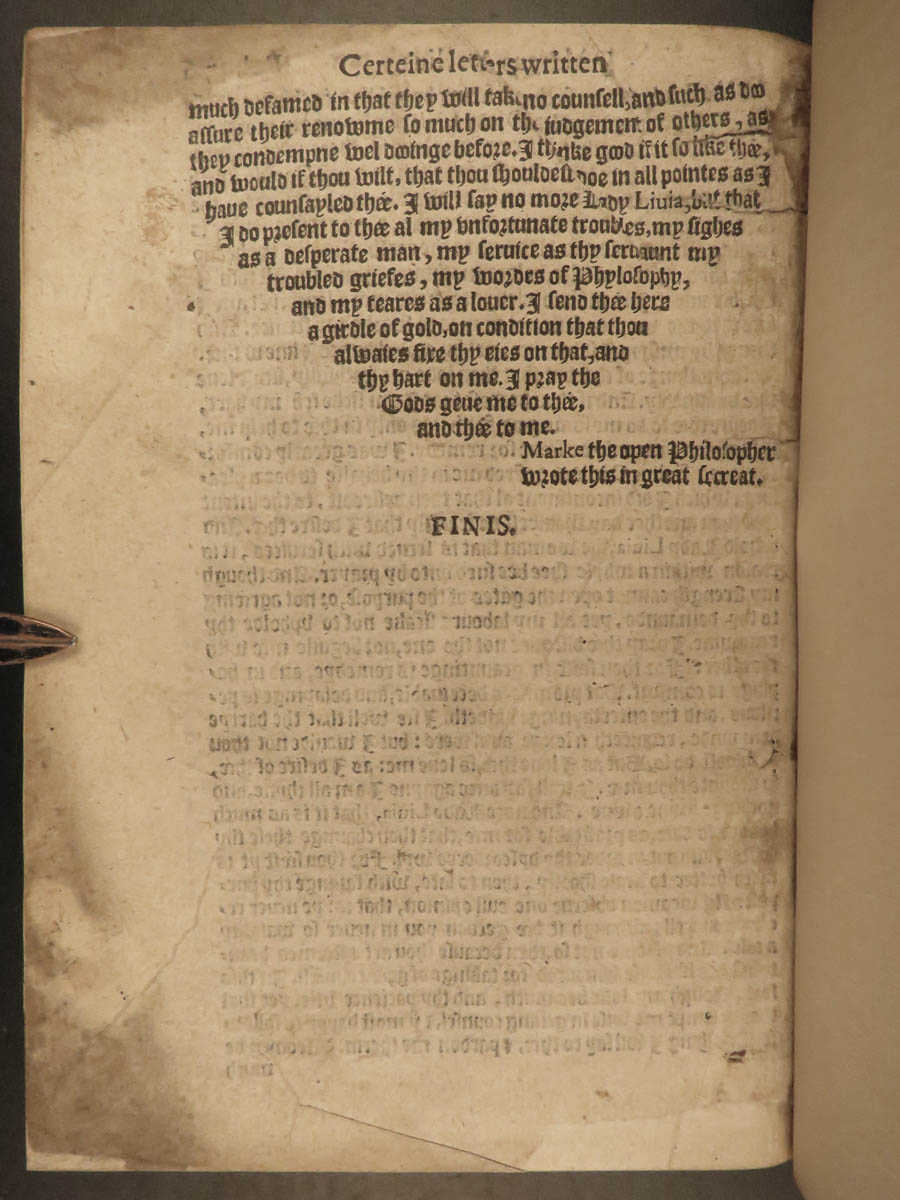 Certeine letters written
much defamed in that they will take no counsell, and such as doo
assure their renowme so much on the iudgement of others, as
they condempne wel dooinge before. I thinke good if it so like thée,
and would if thou wilt, that thou shouldest doe in all pointes as I
haue counsayled thée. I will say no more Lady Liuia, but that
I do present to thée al my vnfortunate troubles, my sighes
as a desperate man, my seruice as thy seruaunt my
troubled griefes, my wordes of Phylosophy,
and my teares as a louer. I send thée here
a girdle of gold, on condition that thou
alwaies fixe thy eies on that, and
thy hart on me. I pray the
Gods geue me to thée,
and thée to me.
Marke the open Philosopher
wrote this in great secreat.
FINIS.